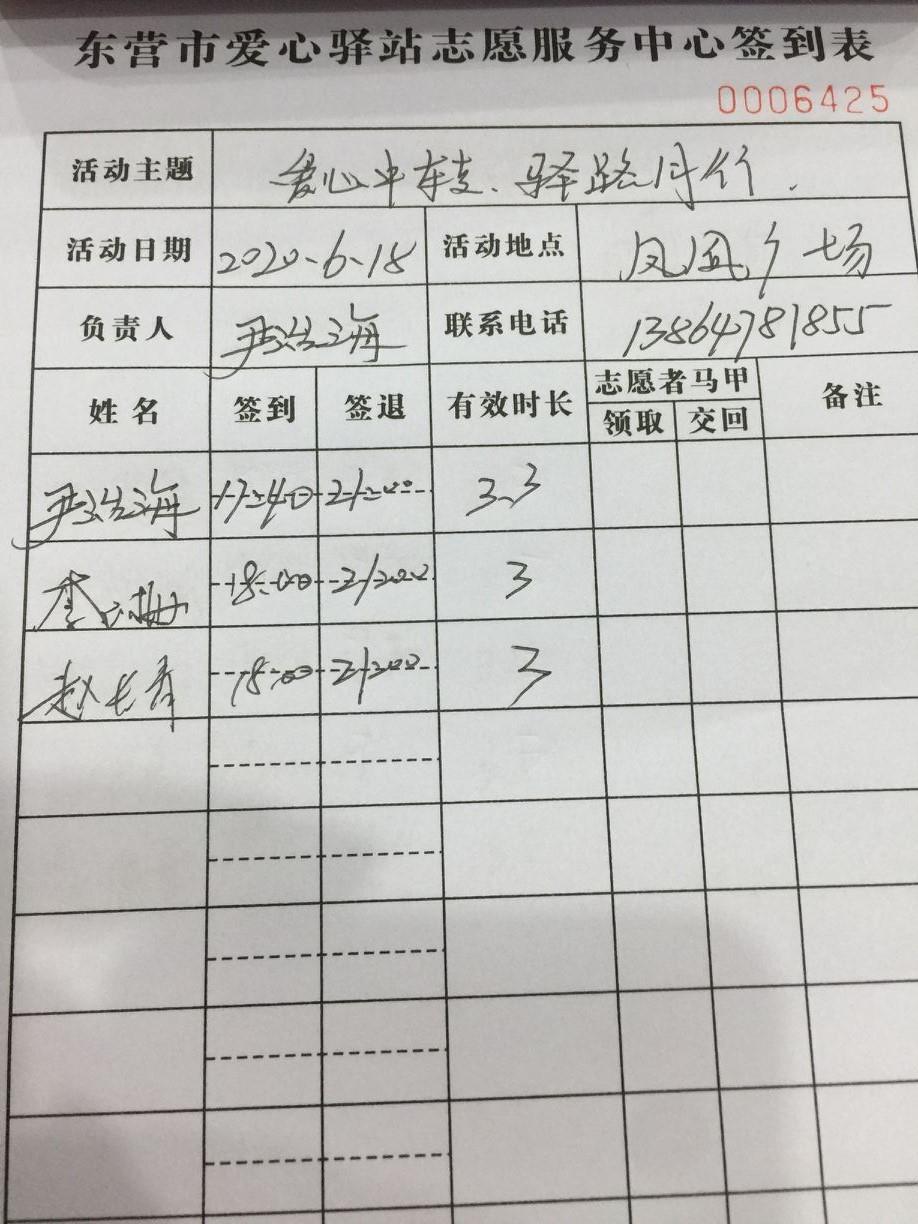 东营市爱心驿站志愿服务中心签到表
0006425
活动主题 爱心中转、驿路同行.
活动日期 2020-6-18 活动地点 凤凰广场
负责人 尹浩海 联系电话 13864781855
姓名 签到 签退 有效时长 志愿者马甲 备注
领取 交回
尹浩海 17:40 21:00 3.3
18:00 21:00 3
赵长青 18:00 21:00 3